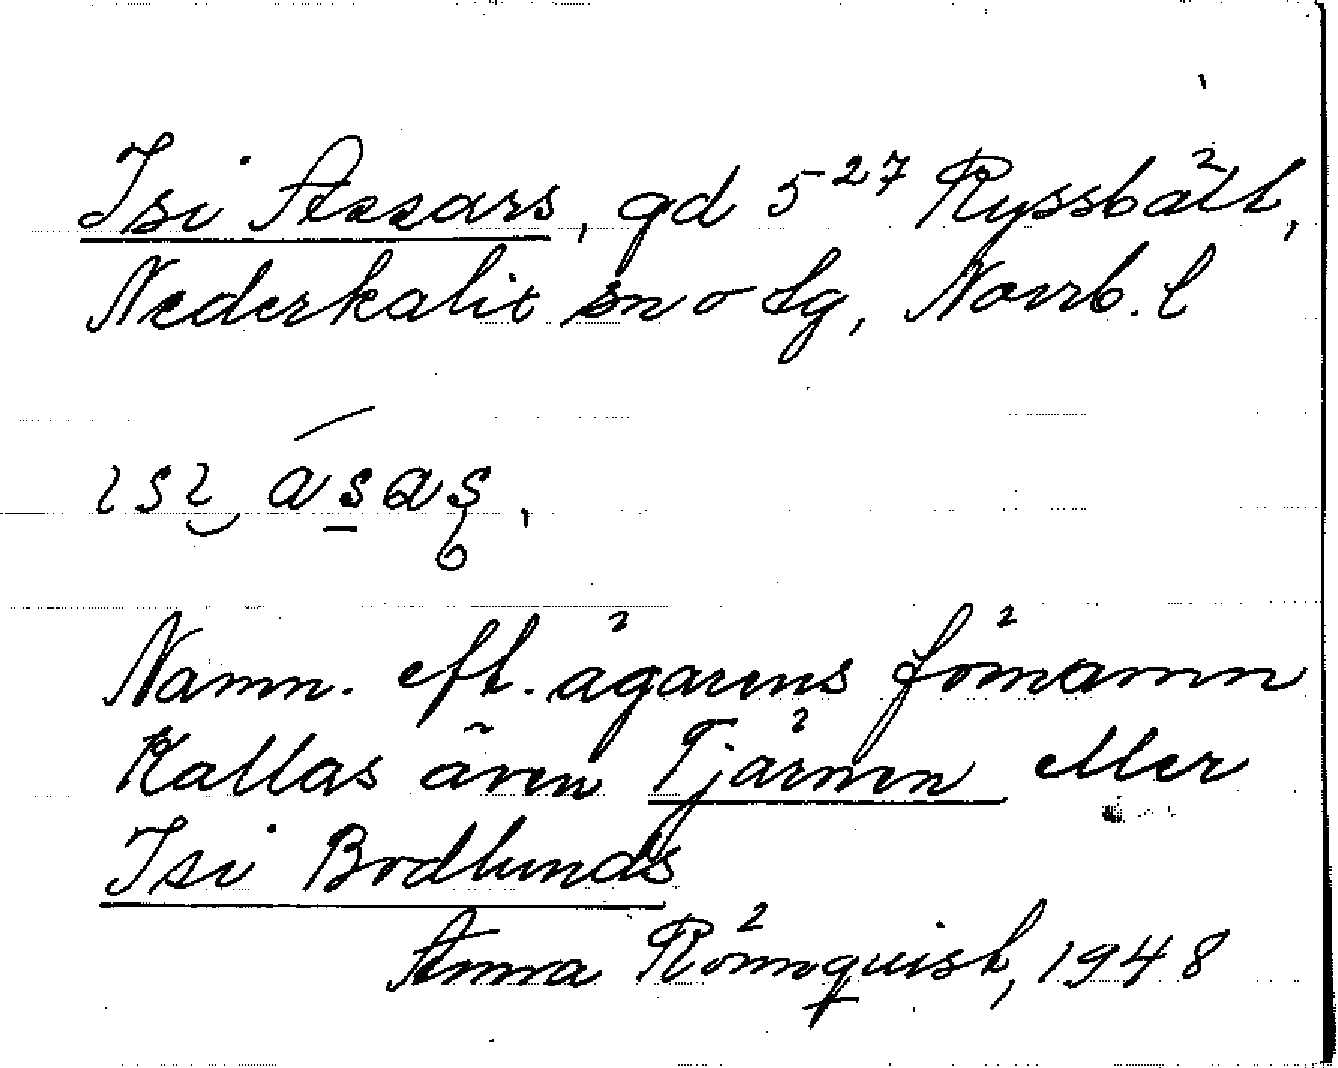 Isi Assars, gd 5²⁷ Ryssbält,
Nederkalix sn o lg, Norrb. l
ısı, ásaʂ,
Namn. eft. ägarens förnamn
Kallas även Tjärnen eller
Isi Bodlunds
Anna Rönnquist, 1948